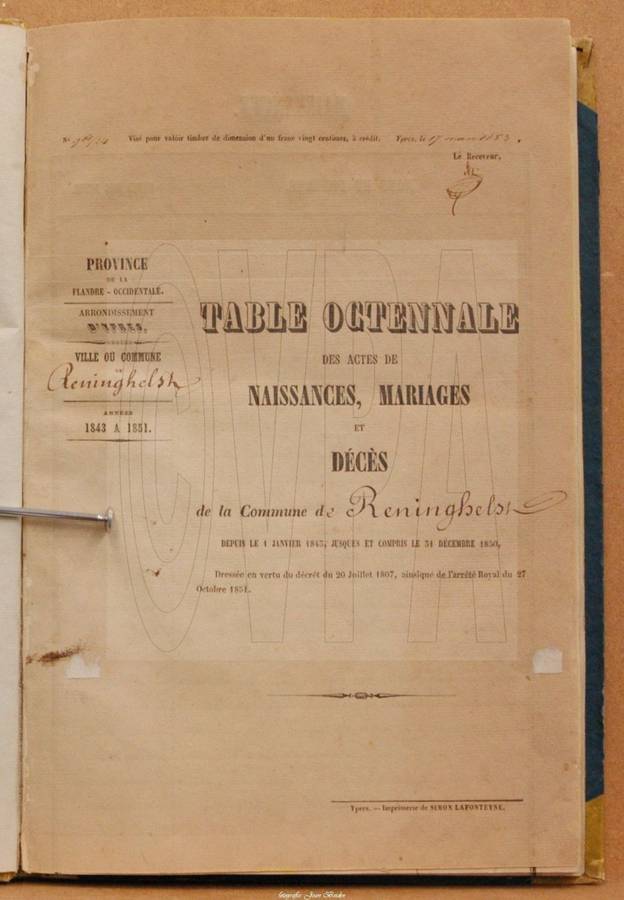 N° Visé pour valoir timbre de dimension d'un franc vingt centimes, à crédit. Ypres, le 17 1853.
Le Receveur,
PROVINCE
DE LA
FLANDRE - OCCIDENTALE.
ARRONDISSEMENT
D'YPRES,
VILLE OU COMMUNE
DE
Reninghelst
ANNÉES
1843 A 1851.
TABLE OCTENNALE
DES ACTES DE
NAISSANCES, MARIAGES
ET
DÉCÈS
de la Commune de Reninghelst
DEPUIS LE 1 JANVIER 1843, JUSQUES ET COMPRIS LE 31 DÉCEMBRE 1850,
Dressée en vertu du décret du 20 Juillet 1807, ainsique de l'arrêté Royal du 27
Octobre 1851.
CVPA
Ypres. — Imprimerie de SIMON LAFONTEYNE.